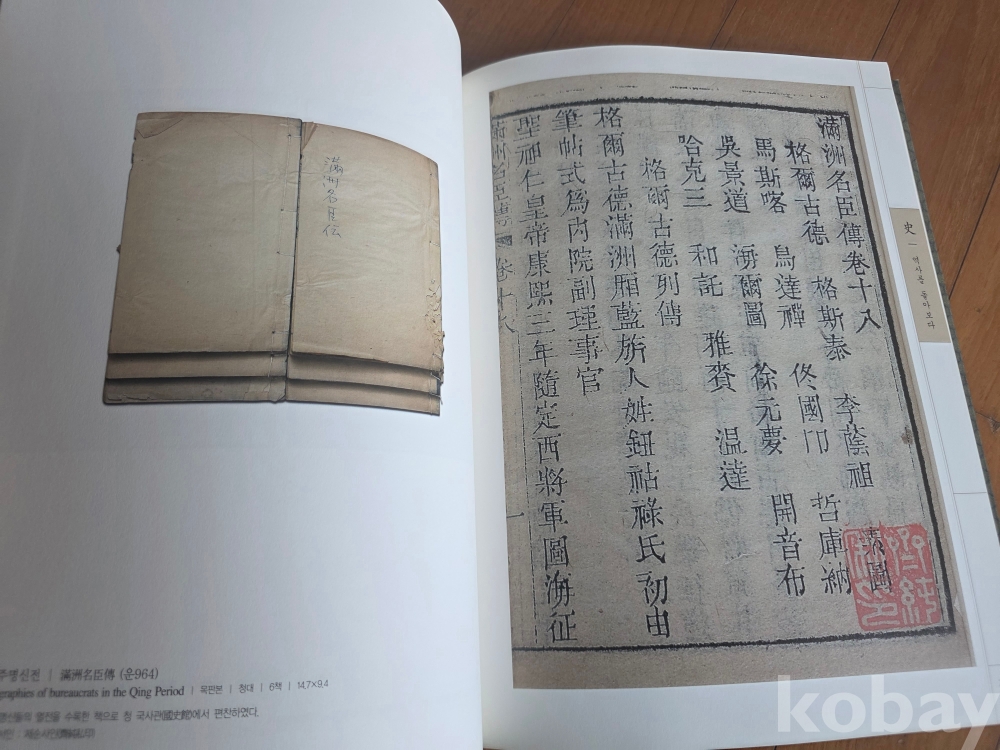 滿洲名臣伝
주명신전 | 滿洲名臣傳 (운964)
graphies of bureaucrats in the Qing Period | 목판본 | 청대 | 6책 | 14.7×9.4
명신들의 열전을 수록한 책으로 청 국사관(國史館)에서 편찬하였다.
滿洲名臣傳卷十八
格爾古德 格斯泰 李蔭祖 素圖
馬斯喀 烏達禪 佟國 哲庫納
吳景道 海爾圖 徐元夢 開音布
哈克三 和託 雅賚 温達
格爾古德列傳
格爾古德滿洲廂藍旂人姓鈕祜祿氏初由
筆帖式爲内院副理事官
聖祖仁皇帝康熙三年隨定西將軍圖海征
滿洲名臣傳 卷十八 一
史 | 역사를 돌아보다
kobay